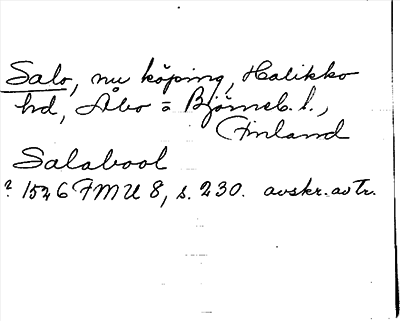 Salo, nu köping, Halikko
hd, Åbo = Björneb. l.,
Finland
Salabool
? 1526 FMU 8, s. 230. avskr. av tr.